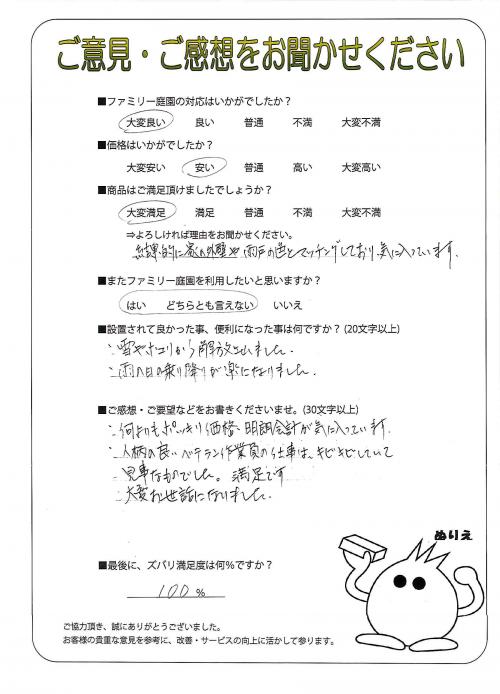 ご意見・ご感想をお聞かせください
■ファミリー庭園の対応はいかがでしたか？
大変良い 良い 普通 不満 大変不満
■価格はいかがでしたか？
大変安い 安い 普通 高い 大変高い
■商品はご満足頂けましたでしょうか？
大変満足 満足 普通 不満 大変不満
⇒よろしければ理由をお聞かせください。
結果的に家の外壁や雨戸の色とマッチングしており、気に入っています。
■またファミリー庭園を利用したいと思いますか？
はい どちらとも言えない いいえ
■設置されて良かった事、便利になった事は何ですか？(20文字以上)
雪やホコリから解放されました。
雨の日の乗り降りが楽になりました。
■ご感想・ご要望などをお書きくださいませ。(30文字以上)
何よりもポッキリ価格、明朗会計が気に入っています。
人柄の良いベテラン作業員の仕事は、キビキビしていて
見事なものでした。満足です
大変お世話になりました。
ぬりえ
■最後に、ズバリ満足度は何％ですか？
100 ％
ご協力頂き、誠にありがとうございました。
お客様の貴重な意見を参考に、改善・サービスの向上に活かして参ります。